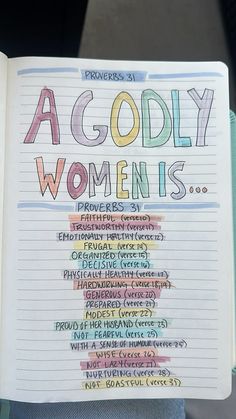 PROVERBS 31
A GODLY
WOMEN IS...
PROVERBS 31
FAITHFUL (verse 10)
TRUSTWORTHY (verse 11)
EMOTIONALLY HEALTHY (verse 12)
FRUGAL (verse 14)
ORGANIZED (verse 15)
DECISIVE (verse 16)
PHYSICALLY HEALTHY (verse 17)
HARDWORKING (verse 18,19)
GENEROUS (verse 20)
PREPARED (verse 21)
MODEST (verse 22)
PROUD OF HER HUSBAND (verse 23)
NOT FEARFUL (verse 25)
WITH A SENSE OF HUMOUR (verse 25)
WISE (verse 26)
NOT LAZY (verse 27)
NURTURING (verse 28)
NOT BOASTFUL (verse 31)